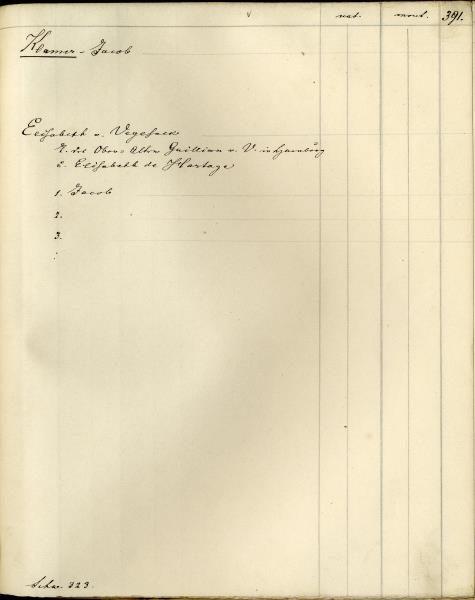 nat. mort. 391.
Klamer - Jacob
Elisabeth v. Vegesack
T. des Ober-Alten Guillian v. V. in Hamburg
u. Elisabeth de Hertoge
1. Jacob
2.
3.
Schw. 323.